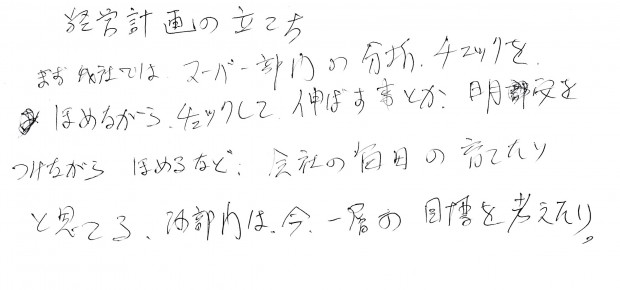 経営計画の立てち
まず 成社では スーパー部門の分析、チェックを、
ほめながら、チェックして 伸ばす事とか、明部文を
つけながら ほめるなど、会社の の 育てたり
と思てる、 部門は、今、一層の 目標を考えたり。